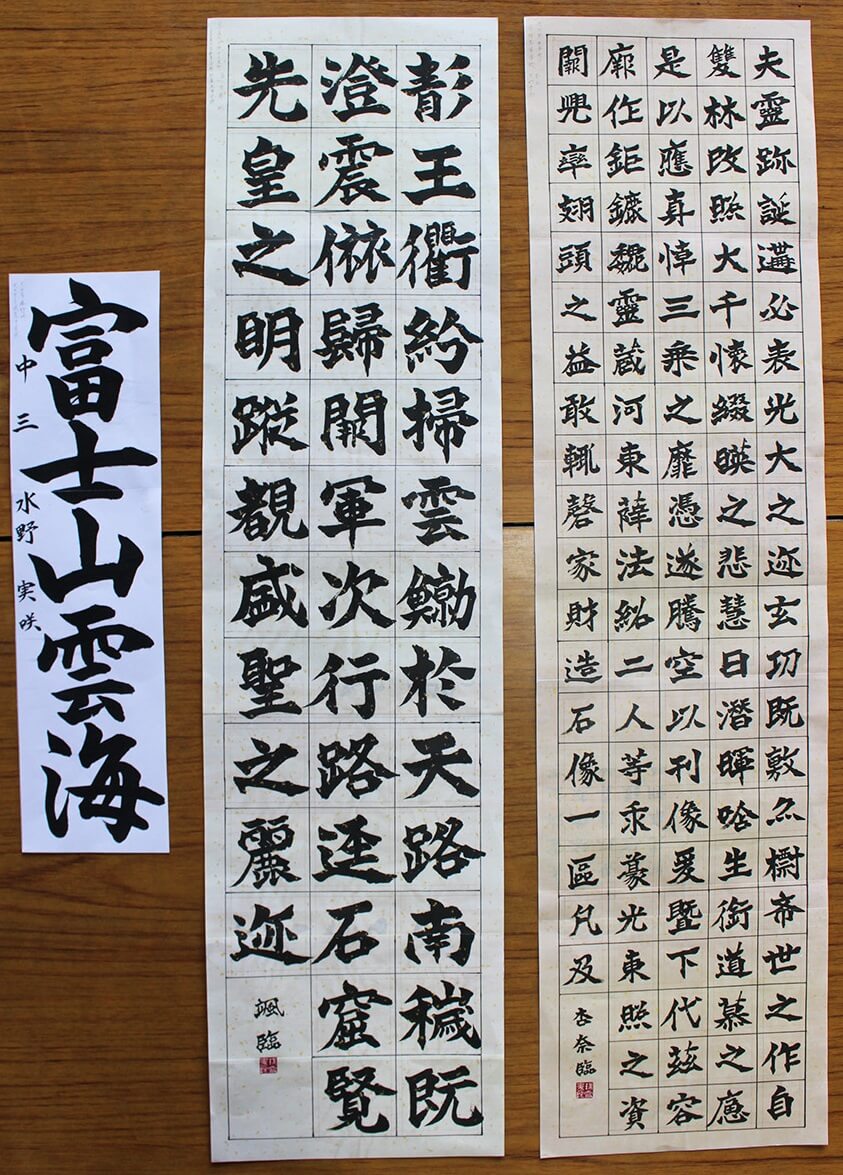 夫靈跡誕遘必表光大之迹玄功既敷亦檦希世之作自
雙林改照大千懷綴暎之悲慧日潛暉唅生銜道慕之應
是以應真悼三乘之靡憑遂騰空以刊像爰暨下代茲容
厥作鉅鏕魏靈藏河東薛法紹二人等乖豪光東照之資
闕兜率翅頭之益敢輒罄家財造石像一區凡及
杏奈臨
彭王衢紛掃雲鯨於天路南穢既
澄震依歸闕軍次行路逕石窟覽
先皇之明蹤覩盛聖之麗迹
颯臨
富士山雲海
中三 水野実咲